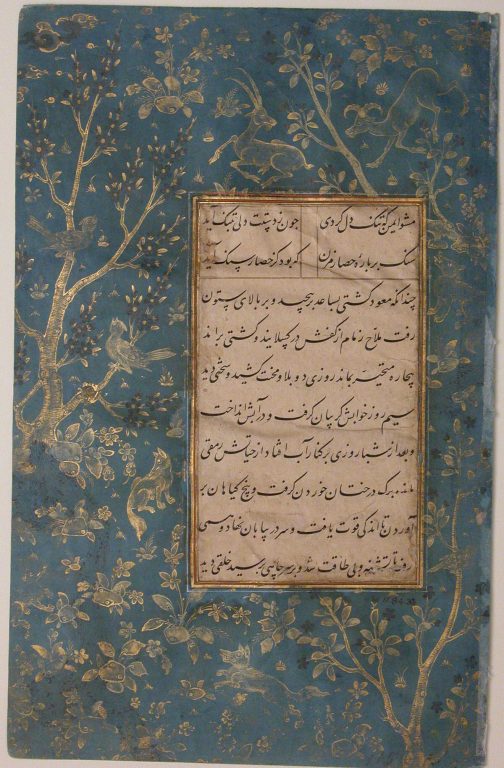 مشو ایمن که تنگ دل گردی چون ز دستت دلی تنگ آید
سنگ بر باره حصار مزن که بود کز حصار سنگ آید
چندانکه مقود کشتی بساعد بر پیچید و بر بالای ستون
رفت ملاح زمام از کفش در کسلانید و کشتی براند
بیچاره متحیر بماند روزی دو بلا و محنت کشید و سختی دید
سیم روز خوابش گریبان گرفت و در آبش انداخت
و بعد از شبانروزی بر کنار آب افتاد از حیاتش رمقی
مانده برگ درختان خوردن گرفت و بیخ گیاهان بر
آوردن تا اندکی قوت یافت و سر در بیابان نهاد و همی
رفت تا تشنه و بی طاقت شد و بسر چاهی برسید خلقی دید